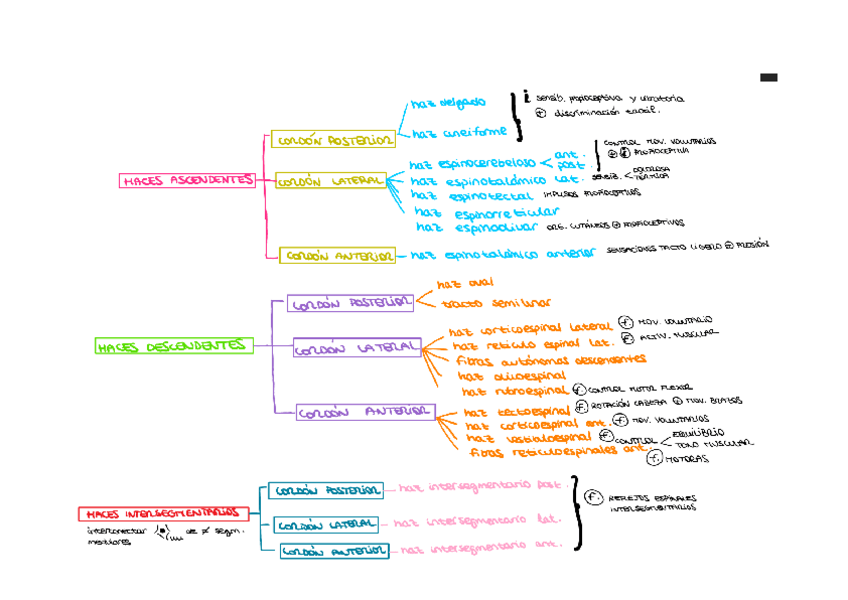 haz delgado
i sensib. propioceptiva y vibratoria
⊕ discriminación táctil.
CORDÓN POSTERIOR
haz cuneiforme
CONTROL MOV. VOLUNTARIOS
⊕ PROPIOCEPTIVA
haz espinocerebeloso < ant.
post.
HACES ASCENDENTES
CORDÓN LATERAL
haz espinotalámico lat. sensib. < DOLOROSA
TÉRMICA
haz espinotectal IMPULSOS PROPIOCEPTIVOS
haz espinorreticular
haz espinoolivar ORG. CUTÁNEOS ⊕ PROPIOCEPTIVOS
CORDÓN ANTERIOR
haz espinotalámico anterior SENSACIONES TACTO LIGERO ⊕ PRESIÓN
haz oval
CORDÓN POSTERIOR
tracto semilunar
haz corticoespinal lateral f. MOV. VOLUNTARIO
HACES DESCENDENTES
CORDÓN LATERAL
haz retículo espinal lat. f. ACTIV. MUSCULAR
fibras autónomas descendentes
haz olivoespinal
haz rubroespinal f. CONTROL MOTOR FLEXOR
CORDÓN ANTERIOR
haz tectoespinal f. ROTACIÓN CABEZA ⊕ MOV. BRAZOS
haz corticoespinal ant. f. MOV. VOLUNTARIOS
haz vestibuloespinal f. CONTROL < EQUILIBRIO
TONO MUSCULAR
fibras reticuloespinales ant. f. MOTORAS
CORDÓN POSTERIOR
haz intersegmentario post.
HACES INTERSEGMENTARIOS
f. REFLEJOS ESPINALES
INTERSEGMENTARIOS
CORDÓN LATERAL
haz intersegmentario lat.
interconectar de ≠ segm.
medulares
CORDÓN ANTERIOR
haz intersegmentario ant.